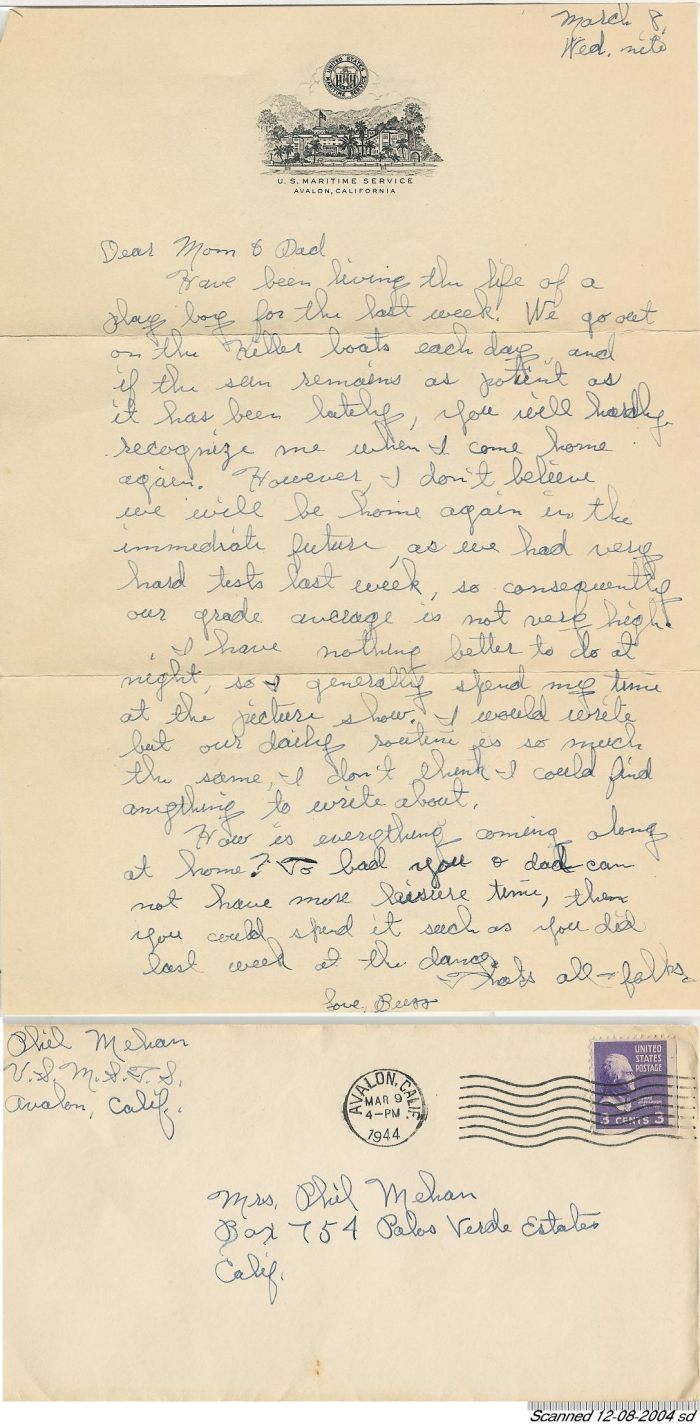 March 8,
Wed. nite
UNITED STATES
MARITIME SERVICE
U.S. MARITIME SERVICE
AVALON, CALIFORNIA
Dear Mom & Dad
Have been living the life of a
play boy for the last week. We go out
on the Killer boats each day, and
if the sun remains as potent as
it has been lately, you will hardly
recognize me when I come home
again. However, I don't believe
we will be home again in the
immediate future, as we had very
hard tests last week, so consequently
our grade average is not very high.
I have nothing better to do at
night, so I generally spend my time
at the picture show. I would write
but our daily routine is so much
the same, I don't think I could find
anything to write about.
How is everything coming along
at home? To bad you & dad can
not have more leisure time, then
you could spend it such as you did
last week at the dance.
Thats all-folks.
Love, Buzz
Phil Mehan
U.S.M.S.T.S.
Avalon, Calif.
AVALON, CALIF.
MAR 9
4-PM
1944
UNITED
STATES
POSTAGE
3 CENTS 3
Mrs. Phil Mehan
Box 754 Palos Verde Estates
Calif.
Scanned 12-08-2004 sd